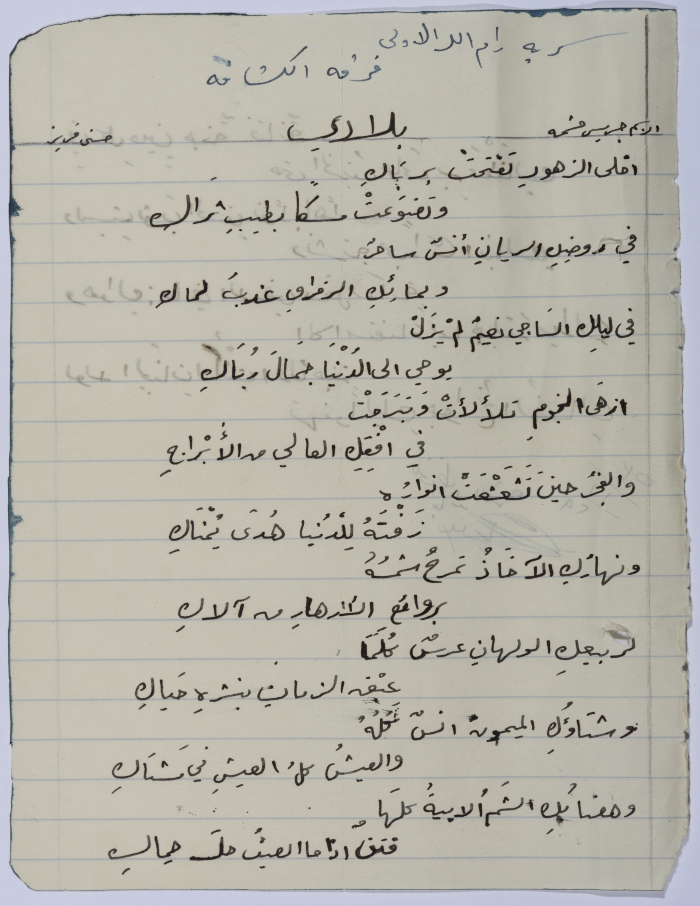 سريه رام الله الاولى
فرقه الكشافه
الاسم جريس قسمه بلادي حسني فريز
احلى الزهور تفتحتْ بربَاكِ
وتضوعتْ مسكاً بطيبِ ثراكِ
في روضِكِ الريانِ أنسٌ ساحرٌ
وبمائكِ الرقراقِ عذبَ لماكِ
في ليلِك الساجي نعيمٌ لمْ يزَلْ
يوحي الى الدُنْيَا جَمالَ رُبَاكِ
ازهَى النجومِ تلألأتْ وَتبَرَجتْ
في افْقِكِ العالي من الأبْراجِ
والفجْرُ حينَ تَشَعْشَعَتْ انوارُه
زَفْتَهُ لِلدُنيا هُدَى يُمْنَاكِ
ونهارُكِ الآخَاذُ تمرحُ شمسُهُ
بروائعِ الأزهارِ من آلاكِ
لربيعِكِ الولهانِ عرسٌ كُلَمَا
عبْق الزمانِ بنشرِهِ حَياكِ
وشتاؤكِ الميمونُ انسٌ كُلُهُ
والعيشُ كلُ العيشِ في مَشتاكِ
وهضابُكِ الشَم الابيةُ كلهَا
اذا ما العيثُ حلَ حماكِ